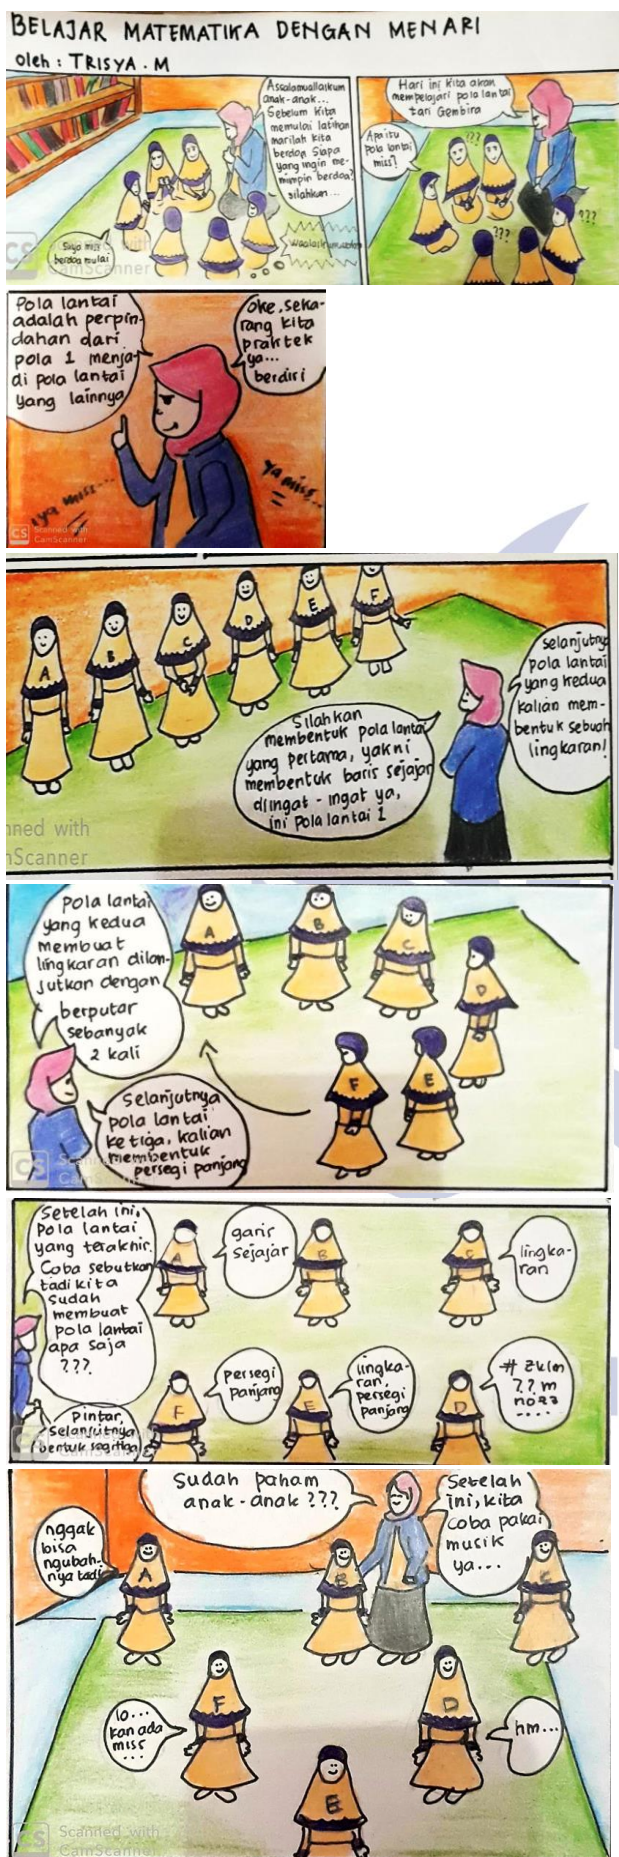 BELAJAR MATEMATIKA DENGAN MENARI
oleh : TRISYA . M
Assalamuallaikum
anak-anak...
Sebelum kita
memulai latihan
marilah kita
berdoa siapa
yang ingin me-
mimpin berdoa?
silahkan...
Saya miss
berdoa mulai
Hari ini kita akan
mempelajari pola lantai
tari Gembira
Apa itu
pola lantai
miss?
???
???
???
Pola lantai
adalah perpin-
dahan dari
pola 1 menja-
di pola lantai
yang lainnya
oke, seka-
rang kita
praktek
ya...
berdiri
iya miss...
ya miss...
CS Scanned with
CamScanner
A
B
C
D
E
F
Silahkan
membentuk pola lantai
yang pertama, yakni
membentuk baris sejajar
diingat - ingat ya,
ini pola lantai 1
selanjutny
pola lantai
yang kedua
kalian mem-
bentuk sebuah
lingkaran!
nned with
nScanner
Pola lantai
yang kedua
membuat
lingkaran dilan-
jutkan dengan
berputar
sebanyak
2 kali
A
B
C
D
E
F
Selanjutnya
pola lantai
ketiga, kalian
membentuk
persegi panjang
CS
Setelah ini,
Pola lantai
yang terakhir.
Coba sebutkan
tadi kita
sudah
membuat
pola lantai
apa saja
???
A
garis
sejajar
B
C
lingka-
ran
F
persegi
panjang
E
lingka-
ran,
persegi
panjang
D
Pintar,
Selanjutnya
bentuk segitiga
Sudah paham
anak-anak ???
Setelah
ini, kita
coba pakai
musik
ya...
nggak
bisa
ngubah-
nya tadi
A
B
C
F
D
E
lo...
kan ada
miss
...
hm...
CS Scanned with
CamScanner